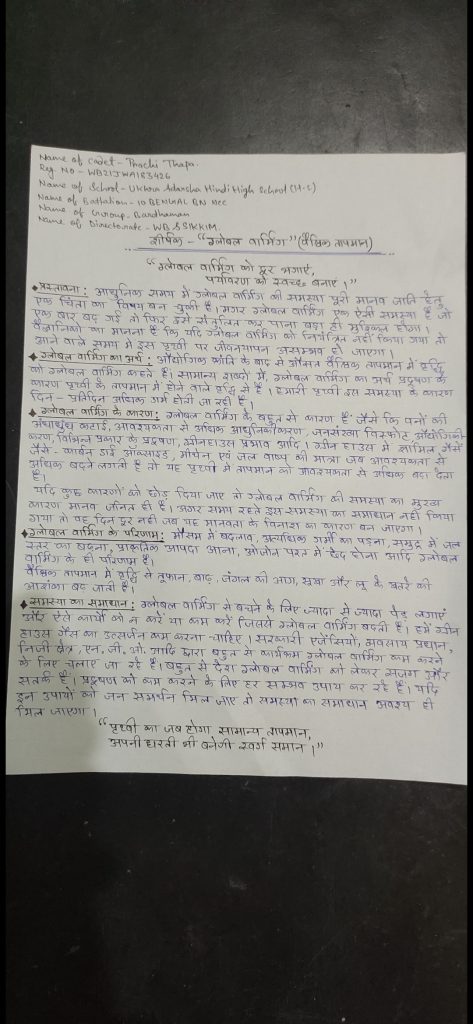 Name of Cadet - Prachi Thapa.
Reg. No - WB21JWA183426
Name of School - Ukhra Adarsha Hindi High School (H.S)
Name of Battalion - 10 BENGAL BN NCC
Name of Group - Bardhaman
Name of Directorate - WB & SIKKIM.
शीर्षक - "ग्लोबल वार्मिंग" (वैश्विक तापमान)
"ग्लोबल वार्मिंग को दूर भगाएं,
पर्यावरण को स्वच्छ बनाएं।"
प्रस्तावना : आधुनिक समय में ग्लोबल वार्मिंग की समस्या पूरी मानव जाति हेतु
एक चिंता का विषय बन चुकी है। मगर ग्लोबल वार्मिंग एक ऐसी समस्या है जो
एक बार बढ़ गई तो फिर इसे संतुलित कर पाना बड़ा ही मुश्किल होगा।
वैज्ञानिकों का मानना है कि यदि ग्लोबल वार्मिंग को नियंत्रित नहीं किया गया तो
आने वाले समय में इस पृथ्वी पर जीवनयापन असम्भव हो जाएगा।
ग्लोबल वार्मिंग का अर्थ : औद्योगिक क्रांति के बाद से औसत वैश्विक तापमान में वृद्धि
को ग्लोबल वार्मिंग कहते हैं। सामान्य शब्दों में, ग्लोबल वार्मिंग का अर्थ प्रदूषण के
कारण पृथ्वी के तापमान में होने वाले वृद्धि से है। हमारी पृथ्वी इस समस्या के कारण
दिन - प्रतिदिन अधिक गर्म होती जा रही है।
ग्लोबल वार्मिंग के कारण : ग्लोबल वार्मिंग के बहुत से कारण हैं जैसे कि वनों की
अंधाधुंध कटाई, आवश्यकता से अधिक आधुनिकीकरण, जनसंख्या विस्फोट, औद्योगिकी-
करण, विभिन्न प्रकार के प्रदूषण, ग्रीनहाउस प्रभाव आदि। ग्रीन हाउस में शामिल गैसें
जैसे - कार्बन डाई ऑक्साइड, मीथेन एवं जल वाष्प की मात्रा जब आवश्यकता से
अधिक बढ़ने लगती है तो यह पृथ्वी में तापमान को आवश्यकता से अधिक बढ़ा देता
है।
यदि कुछ कारणों को छोड़ दिया जाए तो ग्लोबल वार्मिंग की समस्या का मुख्य
कारण मानव जनित ही है। अगर समय रहते इस समस्या का समाधान नहीं किया
गया तो वह दिन दूर नहीं जब यह मानवता के विनाश का कारण बन जाएगा।
ग्लोबल वार्मिंग के परिणाम : मौसम में बदलाव, अत्यधिक गर्मी का पड़ना, समुद्र में जल
स्तर का बढ़ना, प्राकृतिक आपदा आना, ओजोन परत में छेद होना आदि ग्लोबल
वार्मिंग के ही परिणाम हैं।
वैश्विक तापमान में वृद्धि से तूफान, बाढ़, जंगल की आग, सूखा और लू के खतरे की
आशंका बढ़ जाती है।
समस्या का समाधान : ग्लोबल वार्मिंग से बचने के लिए ज्यादा से ज्यादा पेड़ लगाएं
और ऐसे कार्यों को न करें या कम करें जिससे ग्लोबल वार्मिंग बढ़ती है। हमें ग्रीन
हाउस गैस का उत्सर्जन कम करना चाहिए। सरकारी एजेंसियों, व्यवसाय प्रधान,
निजी क्षेत्र, एन. जी. ओ. आदि द्वारा बहुत से कार्यक्रम ग्लोबल वार्मिंग कम करने
के लिए चलाए जा रहे हैं। बहुत से देश ग्लोबल वार्मिंग को लेकर सजग और
सतर्क हैं। प्रदूषण को कम करने के लिए हर सम्भव उपाय कर रहे हैं। यदि
इन उपायों को जन समर्थन मिल जाए तो समस्या का समाधान अवश्य ही
मिल जाएगा।
"पृथ्वी का जब होगा सामान्य तापमान,
अपनी धरती भी बनेगी स्वर्ग समान।"